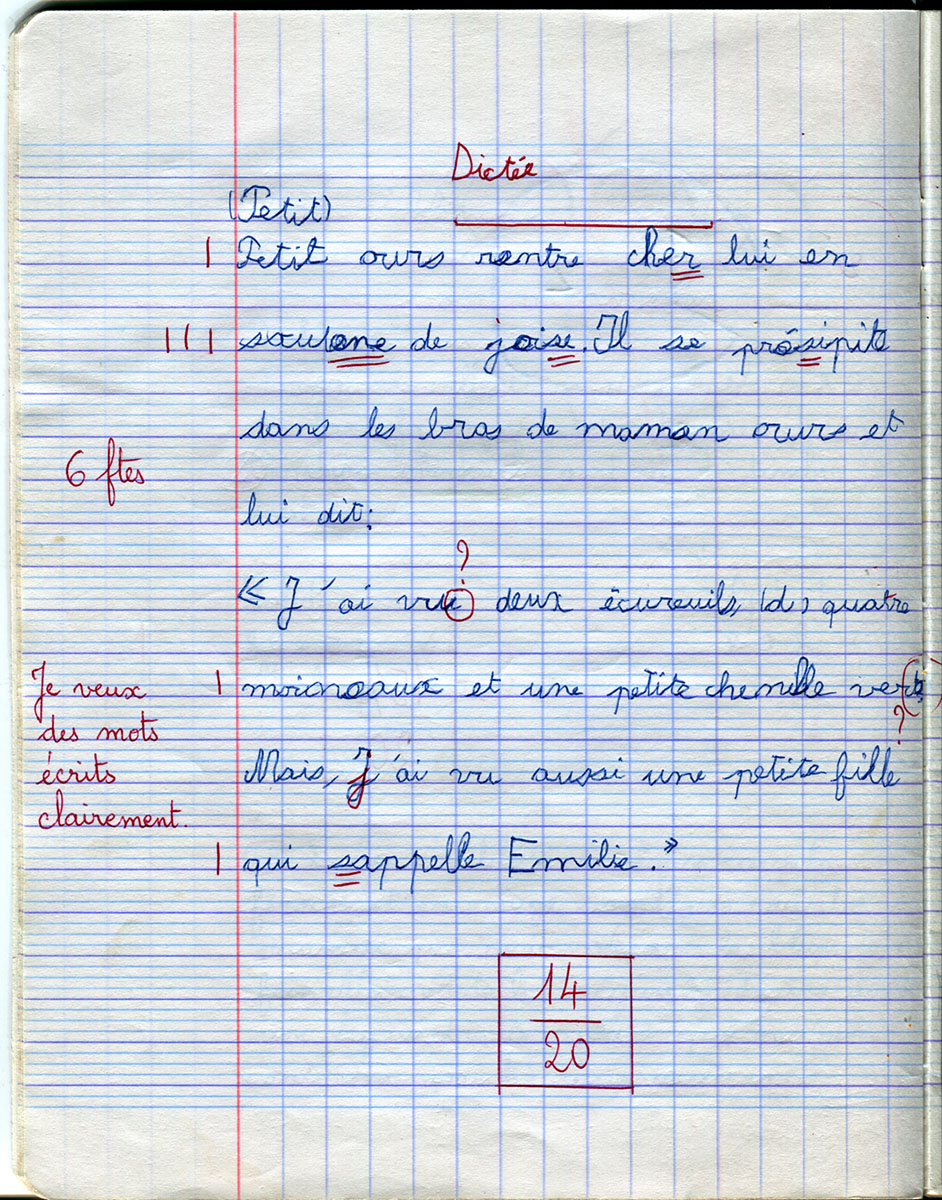 Dictée
(Petit)
| Petit ours rentre cher lui en
||| soulane de joise. Il se présipite
dans les bras de maman ours et
6 ftes
lui dit:
?
« J'ai vu deux écureuils, (d) quatre
Je veux
des mots
écrits
clairement.
| moineaux et une petite chenille verte.
?
Mais, j'ai vu aussi une petite fille
| qui sappelle Emilie. »
14
20